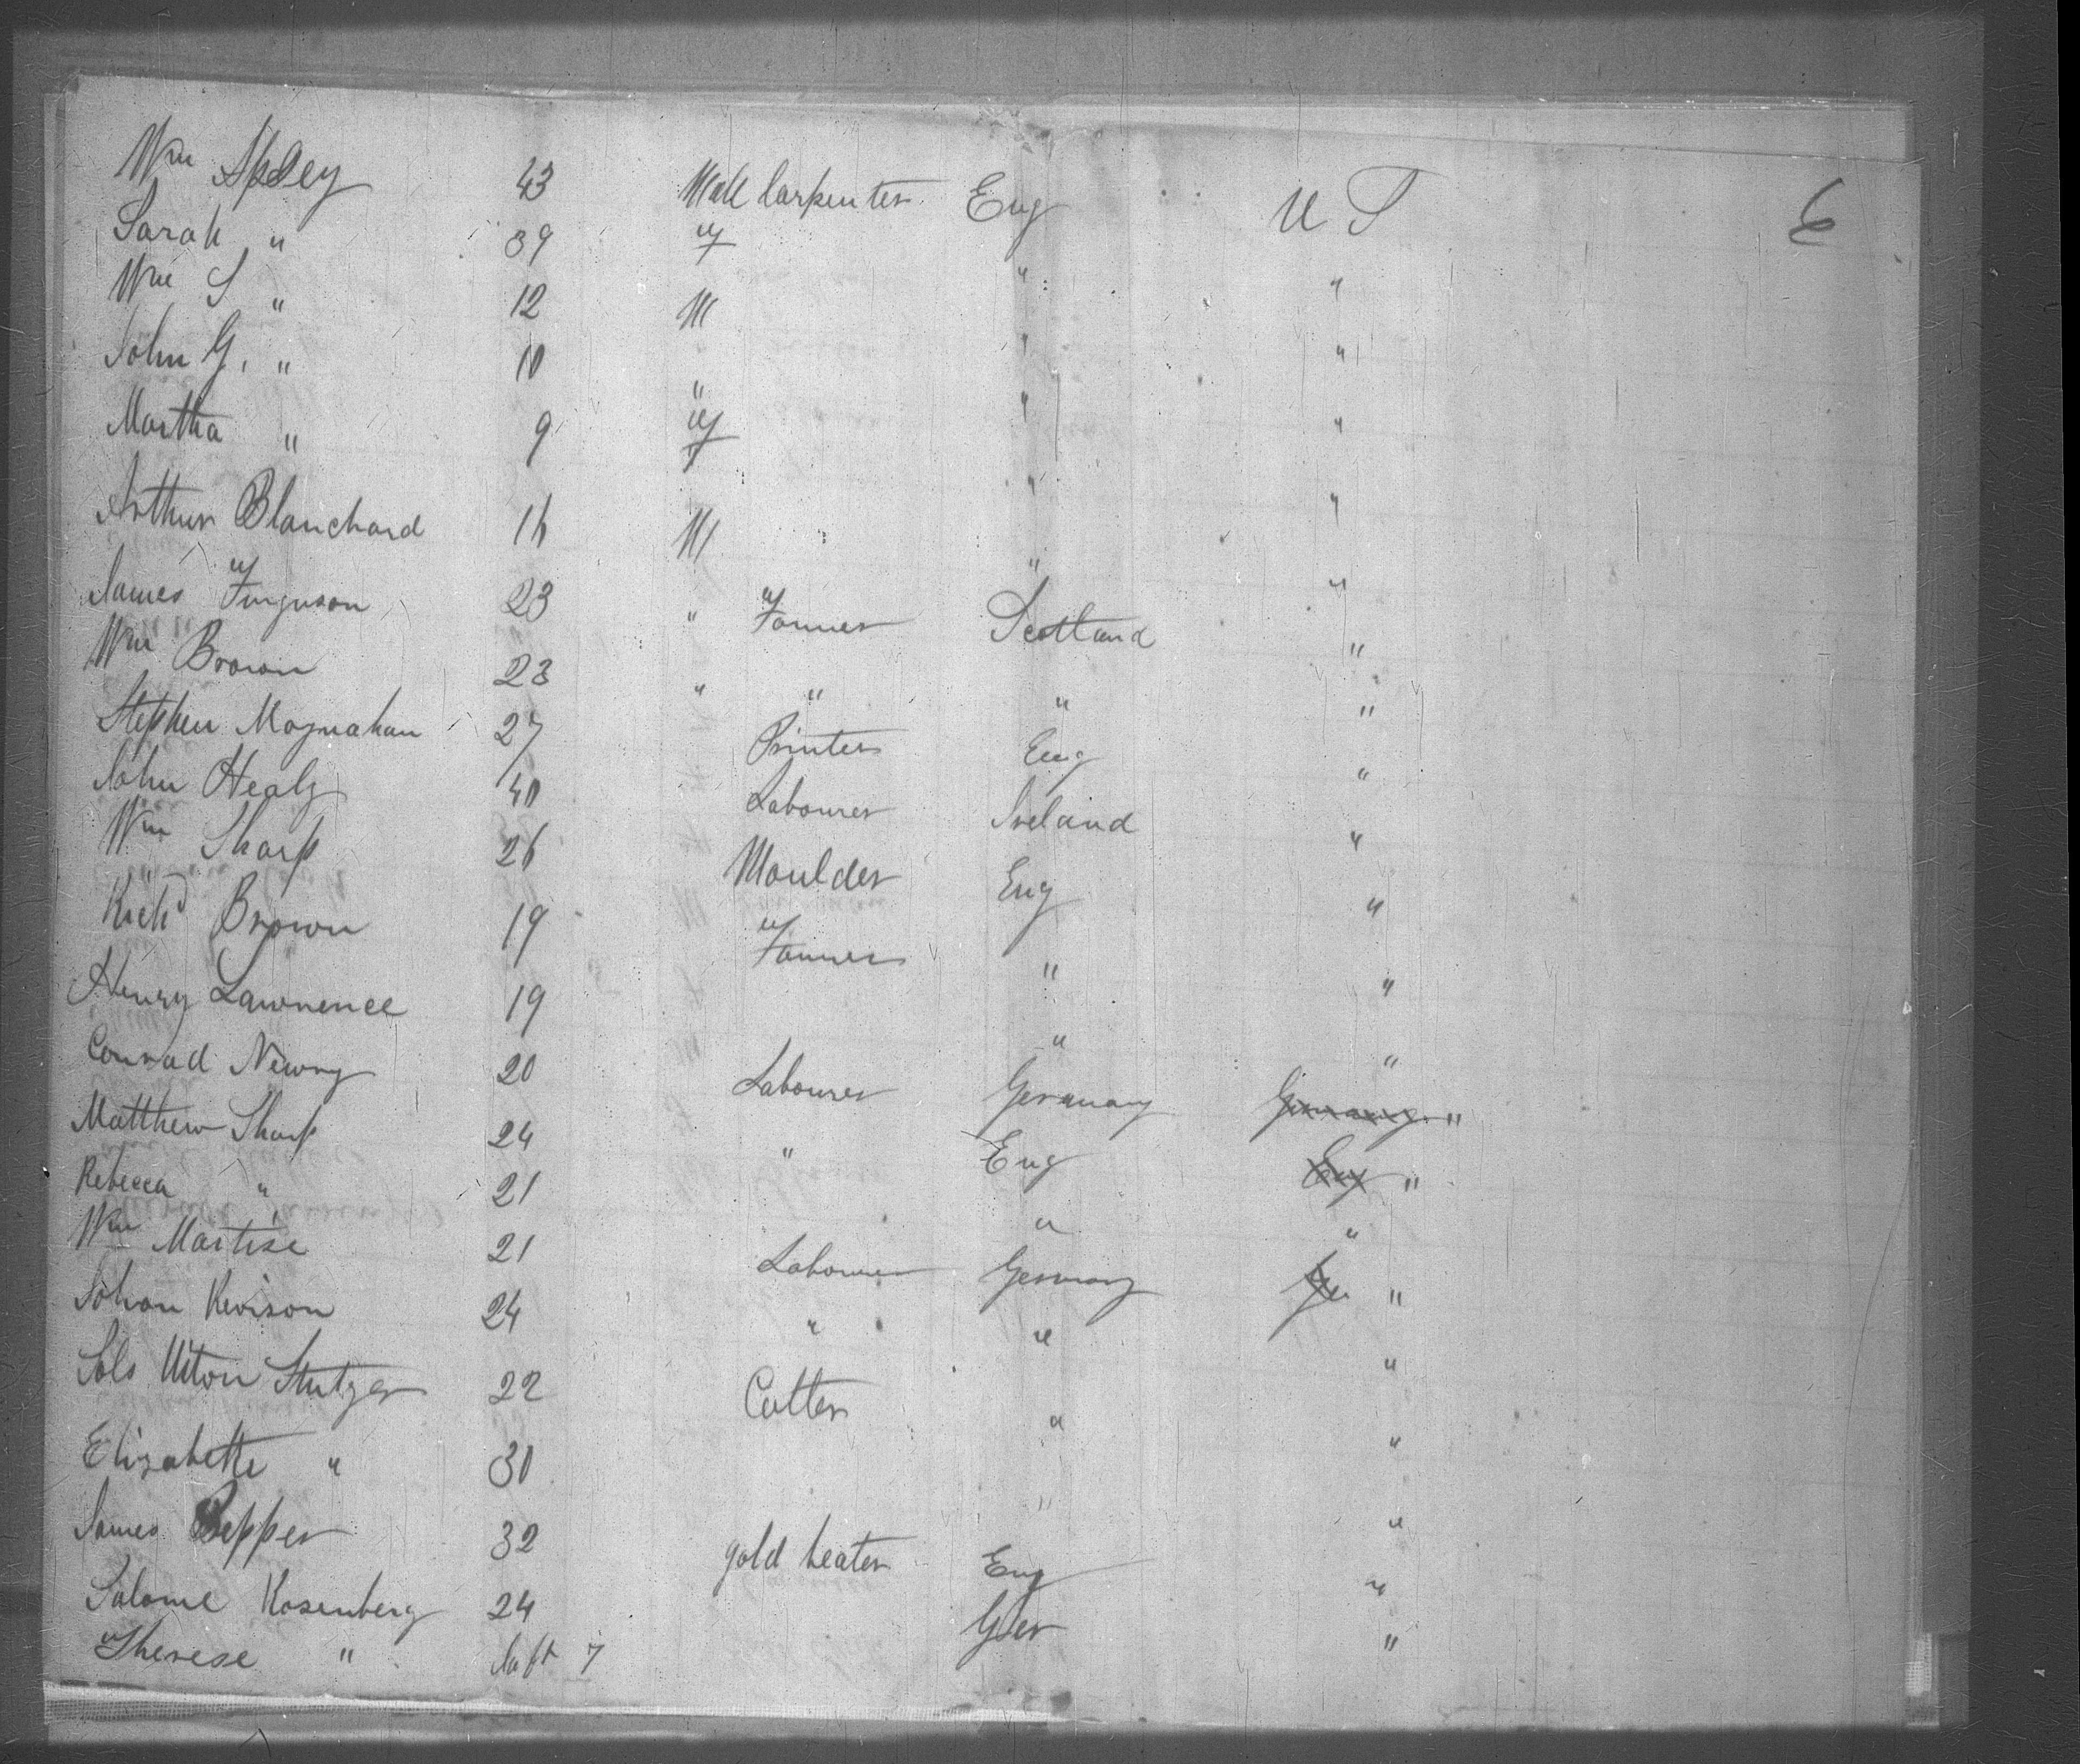 Wm Apsey 43 M Carpenter Eng U S 6
Sarah " 39 F " "
Wm S " 12 M " "
John G. " 10 " " "
Martha " 9 F " "
Arthur Blanchard 16 M " "
James Ferguson 23 " Farmer Scotland "
Wm Brown 23 " " " "
Stephen Moynahan 27 Printer Eng "
John Healy 40 Labourer Ireland "
Wm Sharp 26 Moulder Eng "
Richd Brown 19 Farmer " "
Henry Lawrence 19 " "
Conrad Newry 20 Labourer Germany Germany "
Matthew Sharp 24 " Eng Eng "
Rebecca " 21 " "
Wm Martise 21 Labourer Germany Ger "
Johan Kevison 24 " " "
Stutzer 22 Cutter " "
Elizabette " 30 " "
James Pepper 32 gold beater Eng "
Salome Rosenberg 24 Ger "
Therese " Inft 7